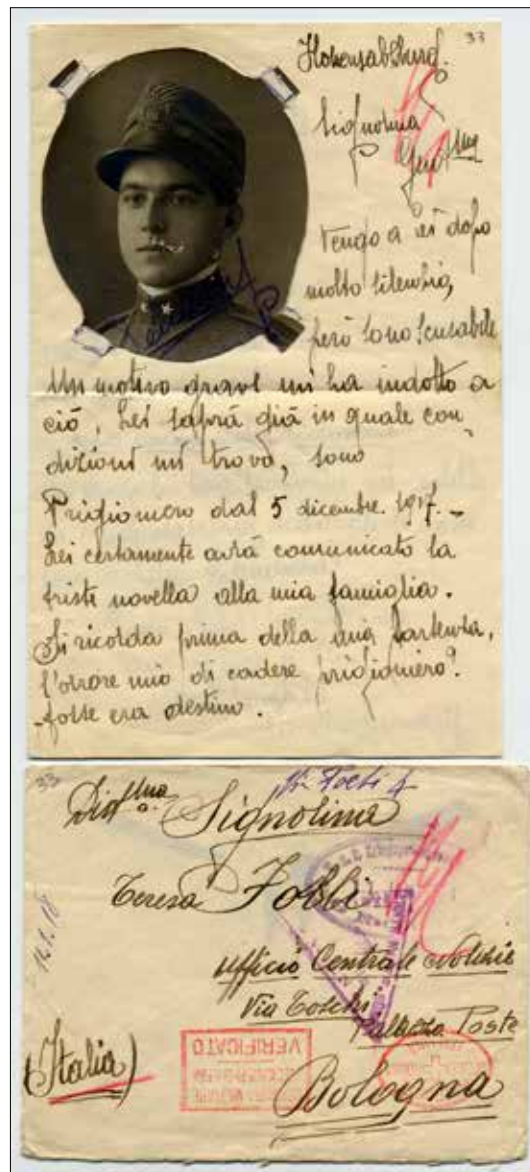 33
Signorina
Gent.ma
Vengo a Lei dopo
molto silenzio,
però sono scusabile
Un motivo grave mi ha indotto a
ciò, Lei saprà già in quale con-
dizioni mi trovo, sono
Prigioniero dal 5 dicembre 1917. -
Lei certamente avrà comunicato la
triste novella alla mia famiglia.
Si ricorda prima della mia partenza,
l'orrore mio di cadere prigioniero?
forse era destino.
33
Dis.ma Signorina
Teresa
Ufficio Centrale Notizie
Via Toschi
Palazzo Poste
(Italia)
Bologna
VERIFICATO